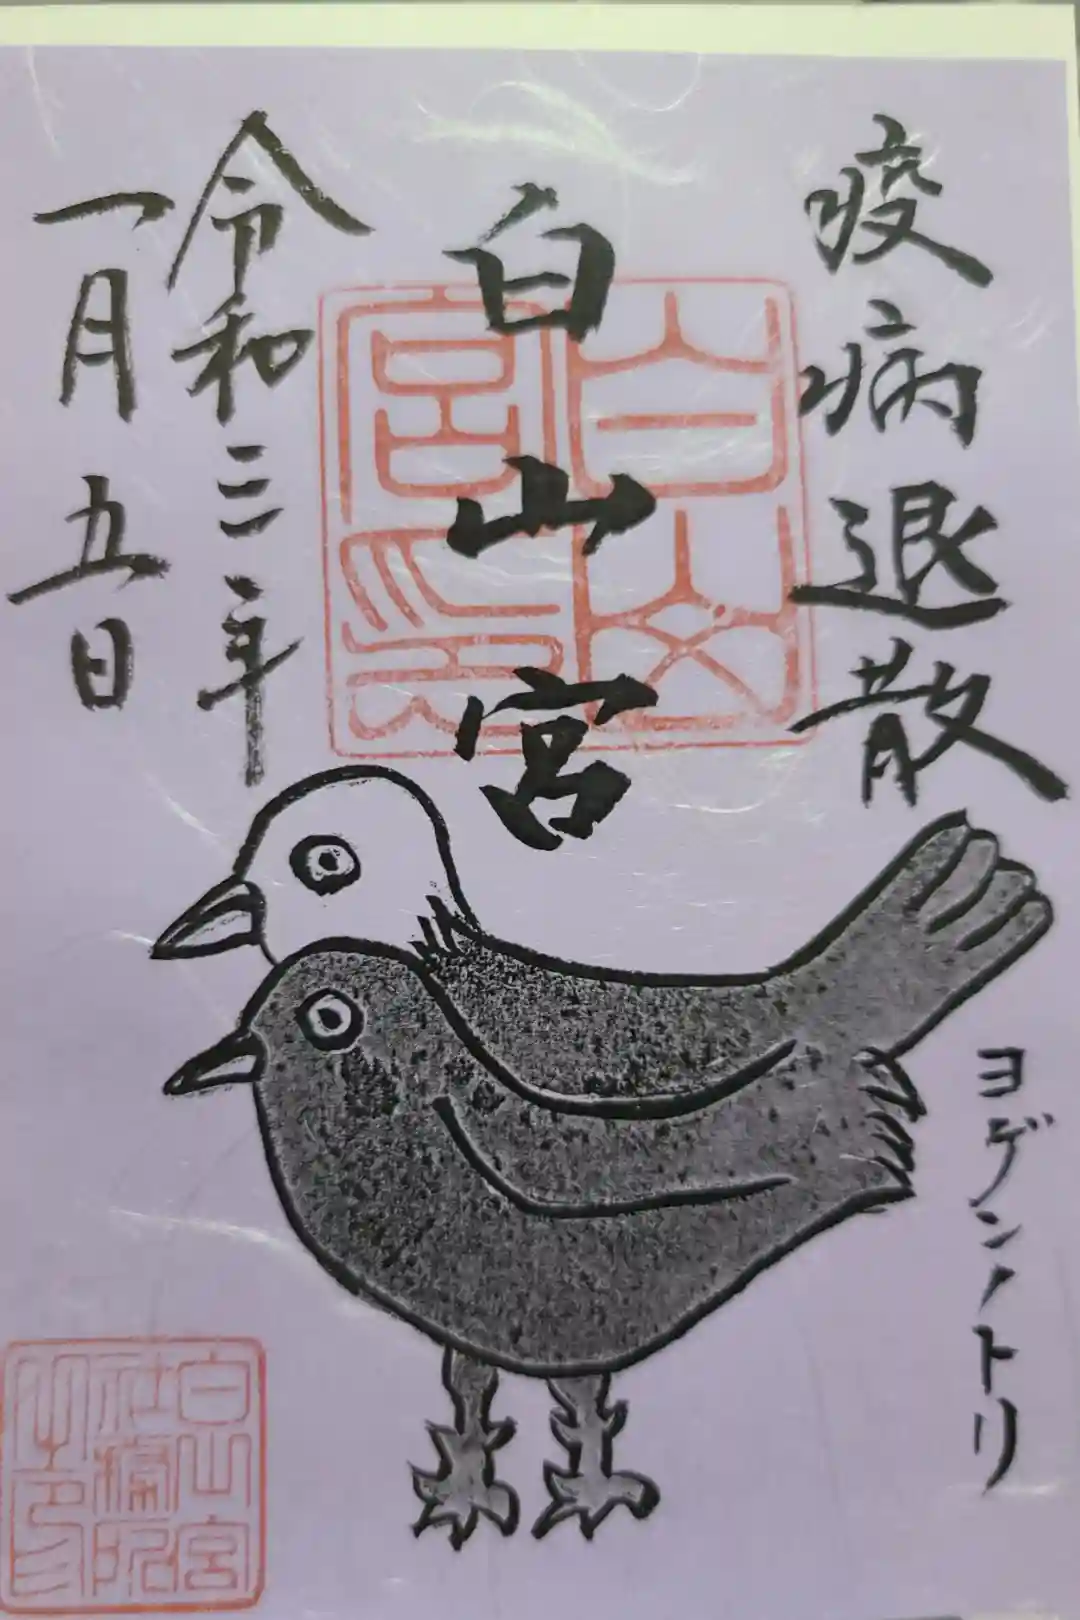 疫病退散
白山宮
令和三年
一月五日
ヨゲンノトリ
白山宮印
白山宮